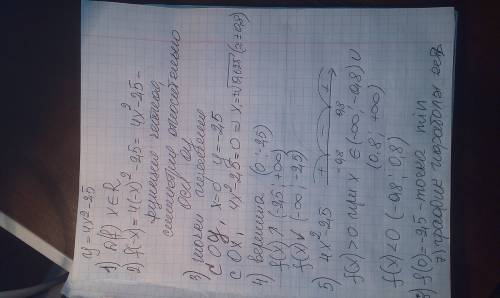 y = 4x² - 2,5
1) D(f) x ∈ R
2) f(-x) = 4(-x)² - 2,5 = 4x² - 2,5 =
функция четная,
симметрия относительно
оси оу
3) точки пересечения
с Оу, x=0 y = -2,5
с Ох, 4x² - 2,5 = 0 ⇒ x₁ = √0,625 (≈ ∓0,8)
4) вершина (0; -2,5)
f(x) ↗ (-2,5; +∞)
f(x) ↘ (-∞; -2,5)
5) 4x² - 2,5 + - +
-0,8 0,8
f(x) > 0 при x ∈ (-∞; -0,8) ∪
(0,8; +∞)
f(x) < 0 (-0,8; 0,8)
f(0) = -2,5 - точка min
7) график парабола